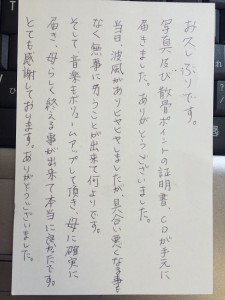 お久しぶりです。
写真及び散骨ポイントの証明書、CDが手元に
届きました。ありがとうございました。
当日波風がありヒヤヒヤしましたが、具合い悪くなる事も
なく無事に行うことが出来て何よりです。
そして、音楽もボリュームアップして頂き、母に確実に
届き、母らしく終える事が出来て本当に良かったです。
とても感謝しております。ありがとうございました。